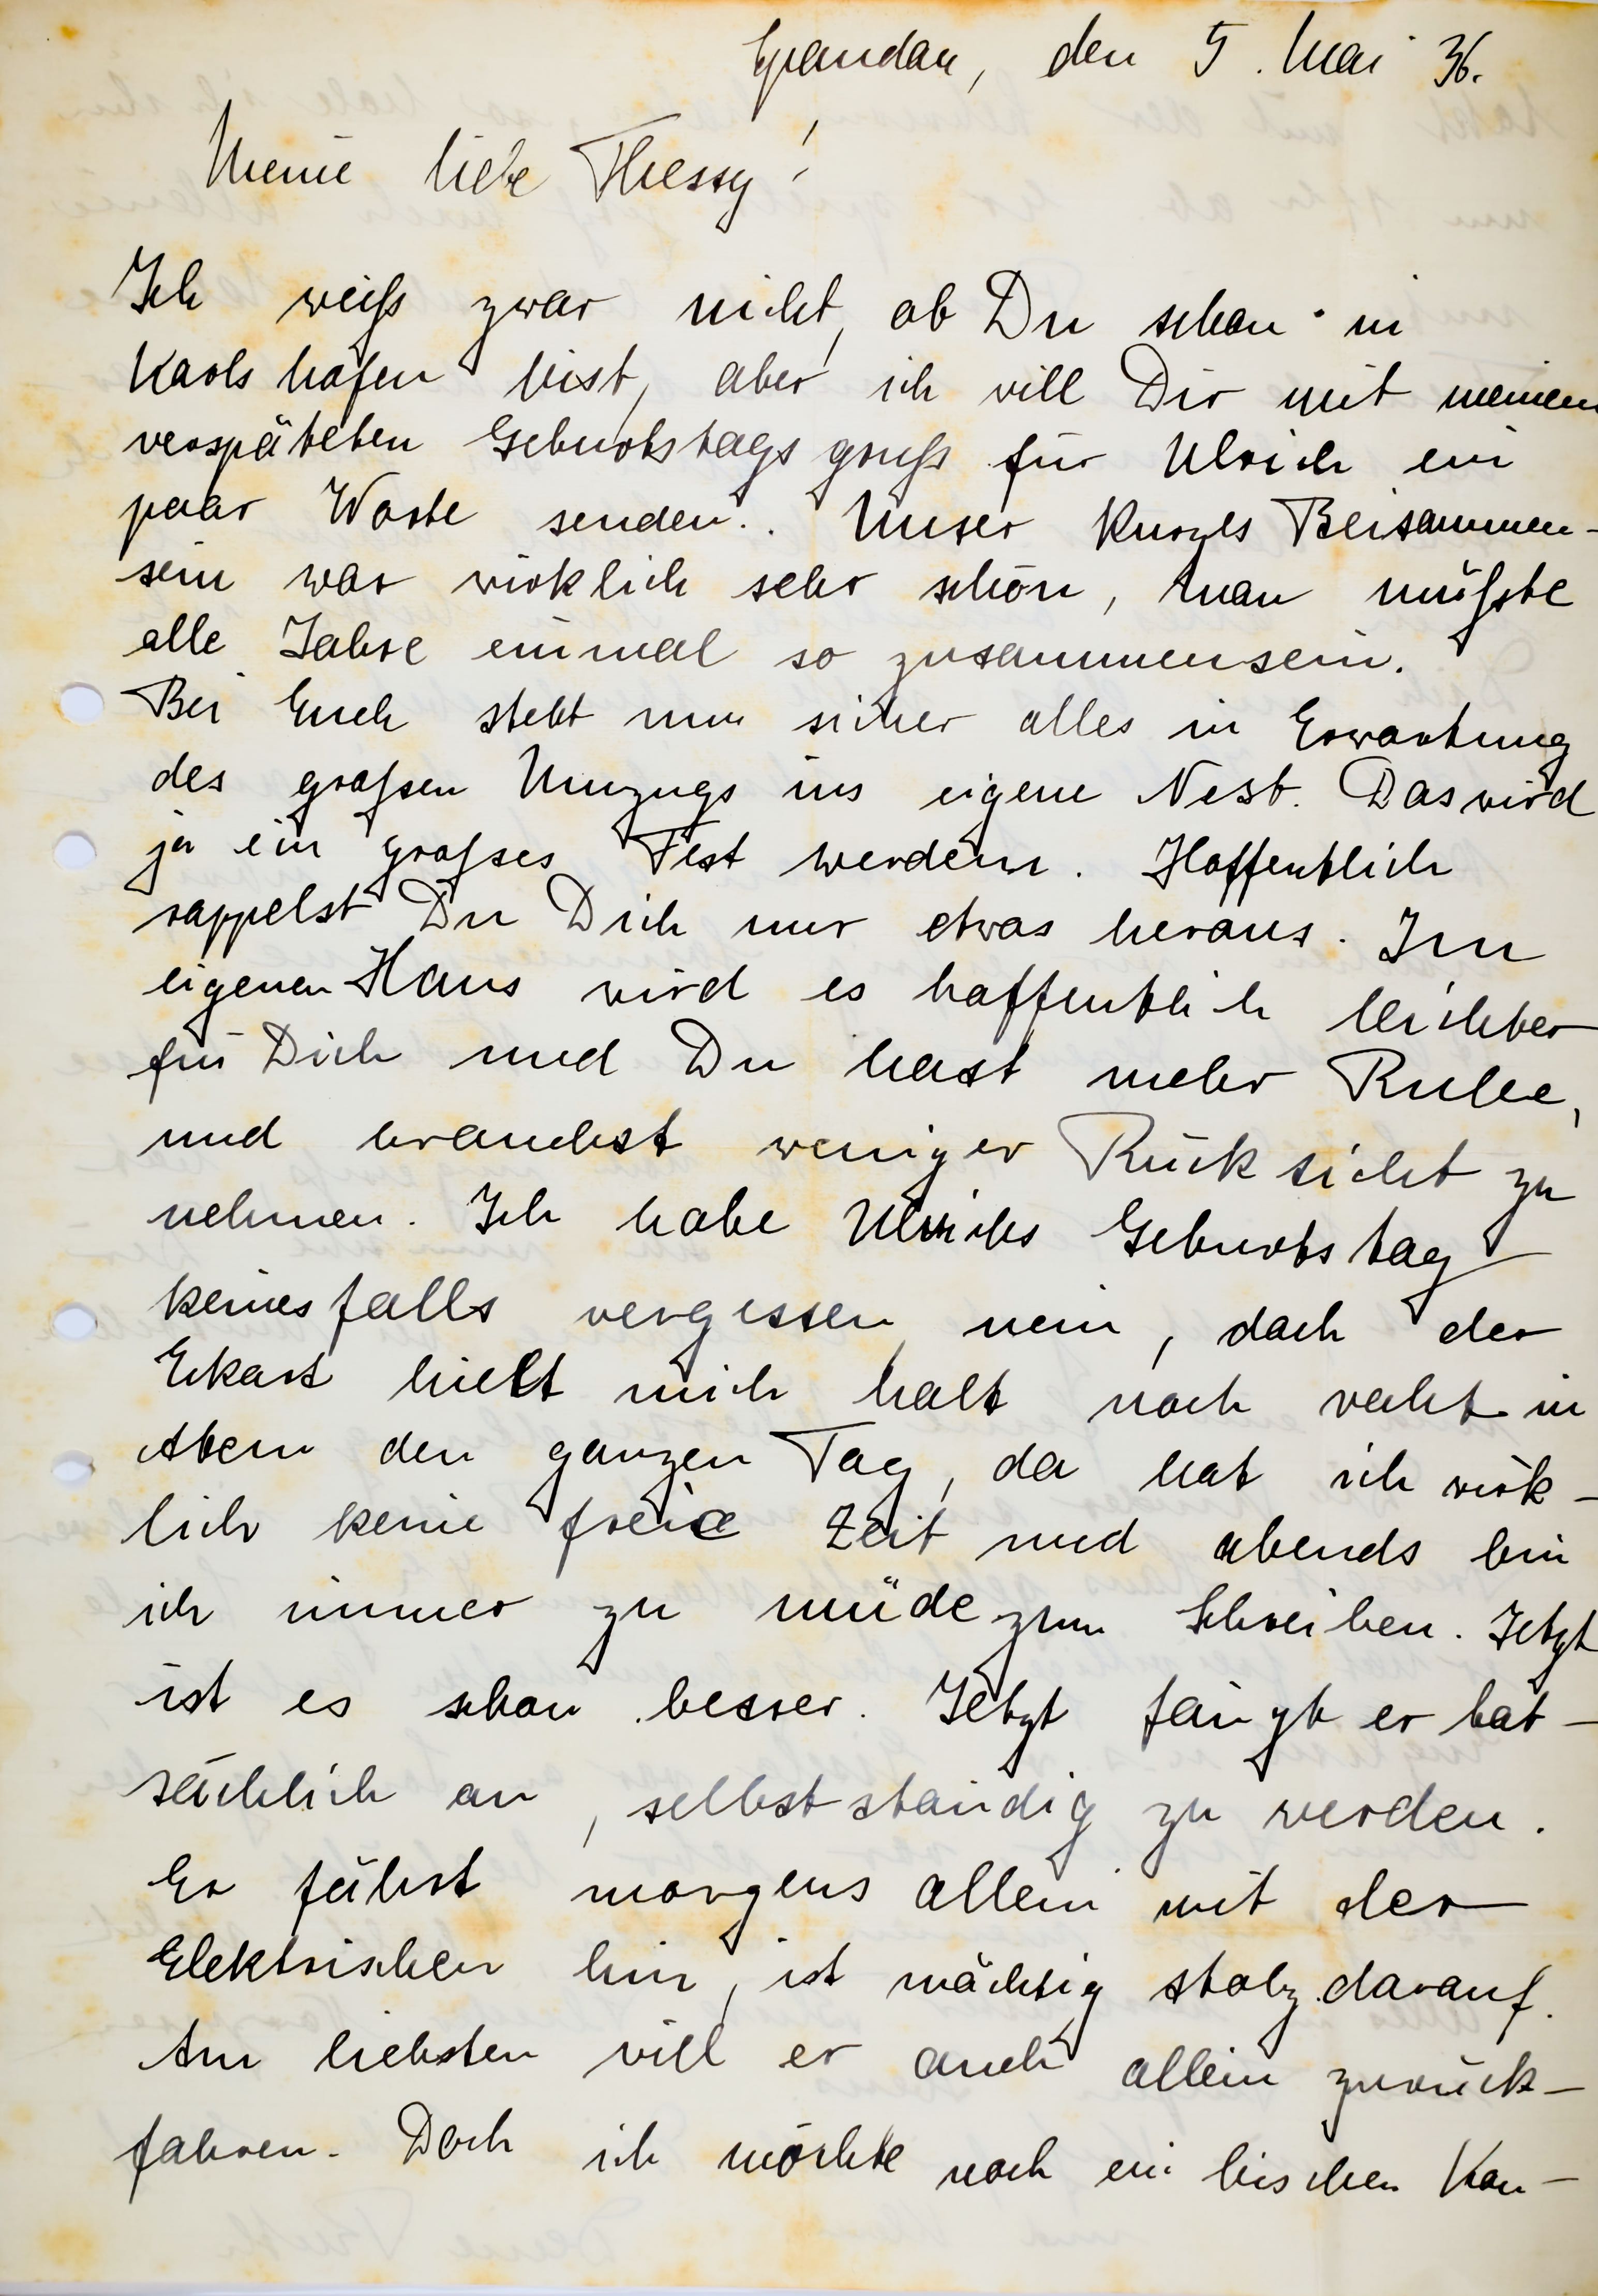 Spandau, den 5. Mai 36.
Meine liebe Thessy!
Ich weiß zwar nicht, ob Du schon in
Karlshafen bist, aber ich will Dir mit meinem
verspäteten Geburtstagsgruß für Ulrich ein
paar Worte senden. Unser kurzes Beisammen-
sein war wirklich sehr schön, man müßte
alle Jahre einmal so zusammensein.
Bei Euch steht nun sicher alles in Erwartung
des großen Umzugs ins eigene Nest. Das wird
ja ein großes Fest werden. Hoffentlich
rappelst Du Dich nur etwas heraus. Im
eigenen Haus wird es hoffentlich leichter
für Dich und Du hast mehr Ruhe,
und brauchst weniger Rücksicht zu
nehmen. Ich habe Ulrichs Geburtstag
keinesfalls vergessen, nein, doch der
Eckart hielt mich halt noch recht in
Atem den ganzen Tag, da hat ich wirk-
lich keine freie Zeit und abends bin
ich immer zu müde zum Schreiben. Jetzt
ist es schon besser. Jetzt fängt er tat-
sächlich an, selbstständig zu werden.
Er fährt morgens allein mit der
Elektrischen hin, ist mächtig stolz darauf.
Am liebsten will er auch allein zurück-
fahren. Doch ich möchte noch ein bischen Kon-